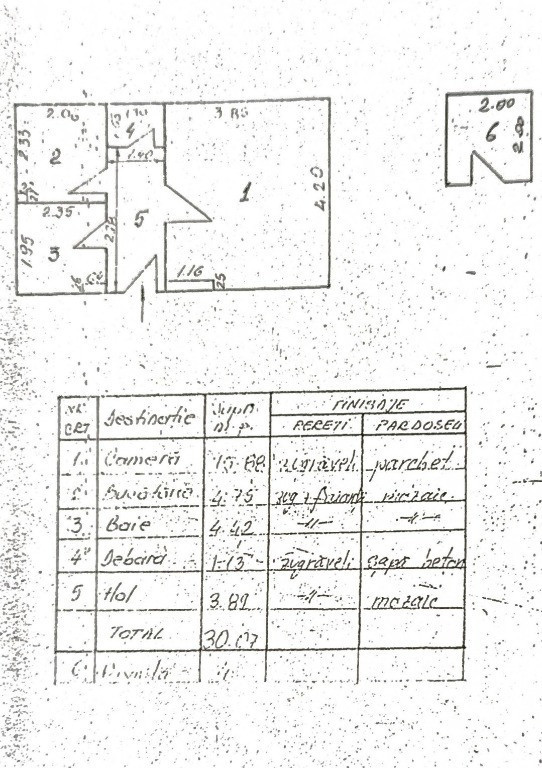 3.85
2.00
4
6
2.33
1.40
2
1
4.20
2.35
5
2.78
1.95
3
1.16
25
NR CRT Destinatie Supr. m.p. FINISAJE
PERETI PARDOSELI
1 Camera 15.88 zugraveli parchet
2 Bucatarie 4.75 mozaic
3 Baie 4.42 -"- -"-
4 Debara 1.13 zugraveli sapa beton
5 Hol 3.89 -"- mozaic
TOTAL 30.07